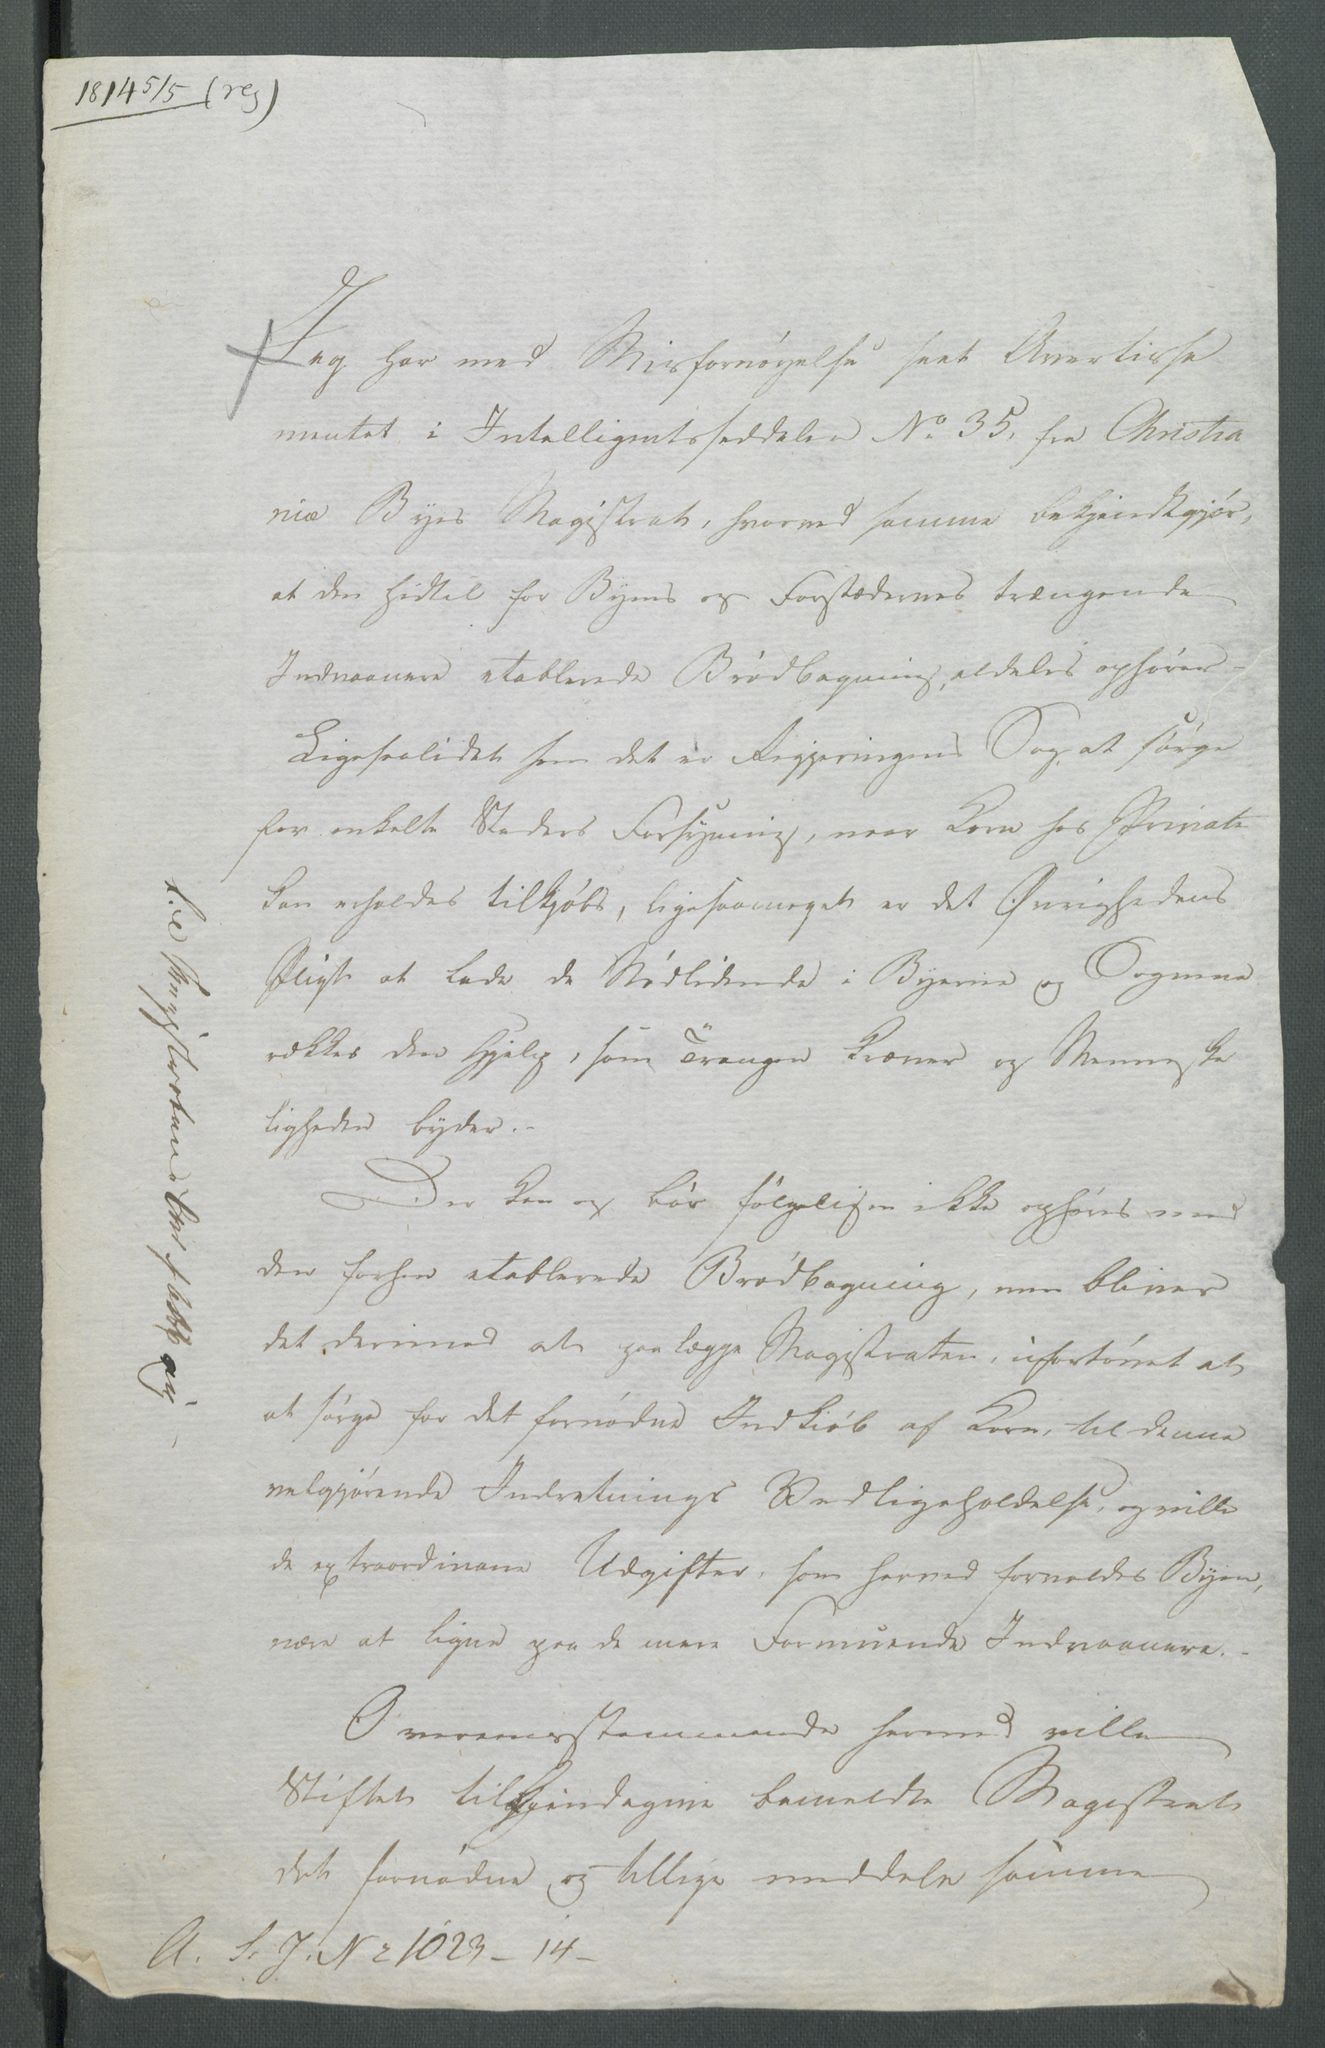 1814 5/5 (reg)
Jeg har med Misfornøyelse seet Avertisse
mentet i Intelligentsseddelen No. 35, fra Christia
niæ Byes Magistrat, hvorved samme bekjendtgjør,
at den hidtil for Byens og Forstædernes trængende
Indvaanere etablerede Brødbagning, aldeles ophører –
Ligesaalidet som det er Regjeringens Sag, at sørge
for enkelte Steders Forsyning, naar Korn hos Private
kan erholdes tilkjøbs, ligesaameget er det Øvrighedens
Pligt at lade de Nødlidende i Byerne og Sognene
rækkes den Hjelp, som Trangen kræver og Menneske
ligheden byder. –
Der kan og bør følgeligen ikke ophøres med
den forhen etablerede Brødbagning, men bliver
det derimod at paalægge Magistraten, ufortøvet at
at sørge for det fornødne Indkiøb af Korn, til denne
velgjørende Indretnings Vedligeholdelse, og ville
de extraordinaire Udgifter, som herved forvoldes Byen,
være at ligne paa de mere Formuende Indvaanere. –
Overensstemmende hermed ville
Stiftet tilkjendegive bemeldte Magistrat
det fornødne og tillige meddele samme
A. S. J. Nr 1023 – 14 –
Magistraten